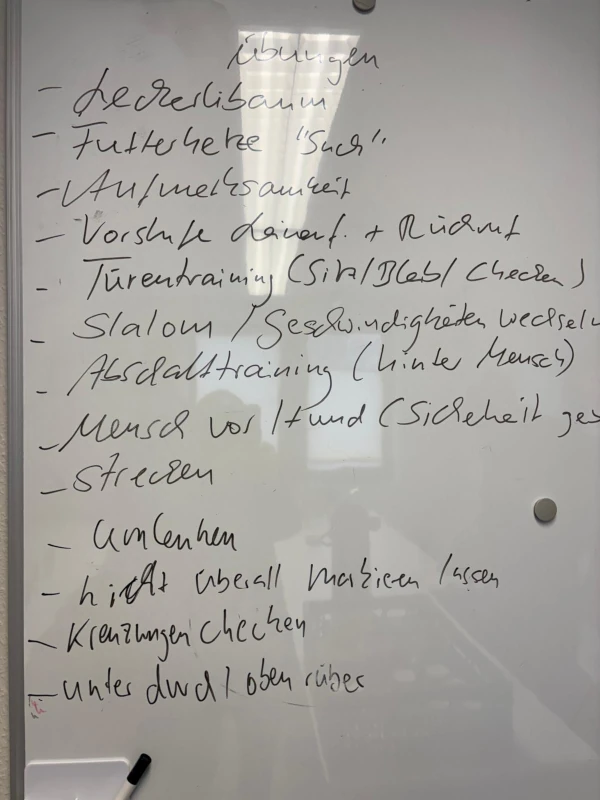 Übungen
- Leckerlibaum
- Futterhetze "Such"
- Aufmerksamkeit
- Vorstufe + Rückruf
- Türentraining (Sitz/Bleib/Checken)
- Slalom / Geschwindigkeiten wechseln
- Abschalttraining (hinter Mensch)
- Mensch vor Hund (Sicherheit ge
- Strecken
- Umlenken
- nicht überall markieren lassen
- Kreuzungen checken
- unter durch / oben rüber